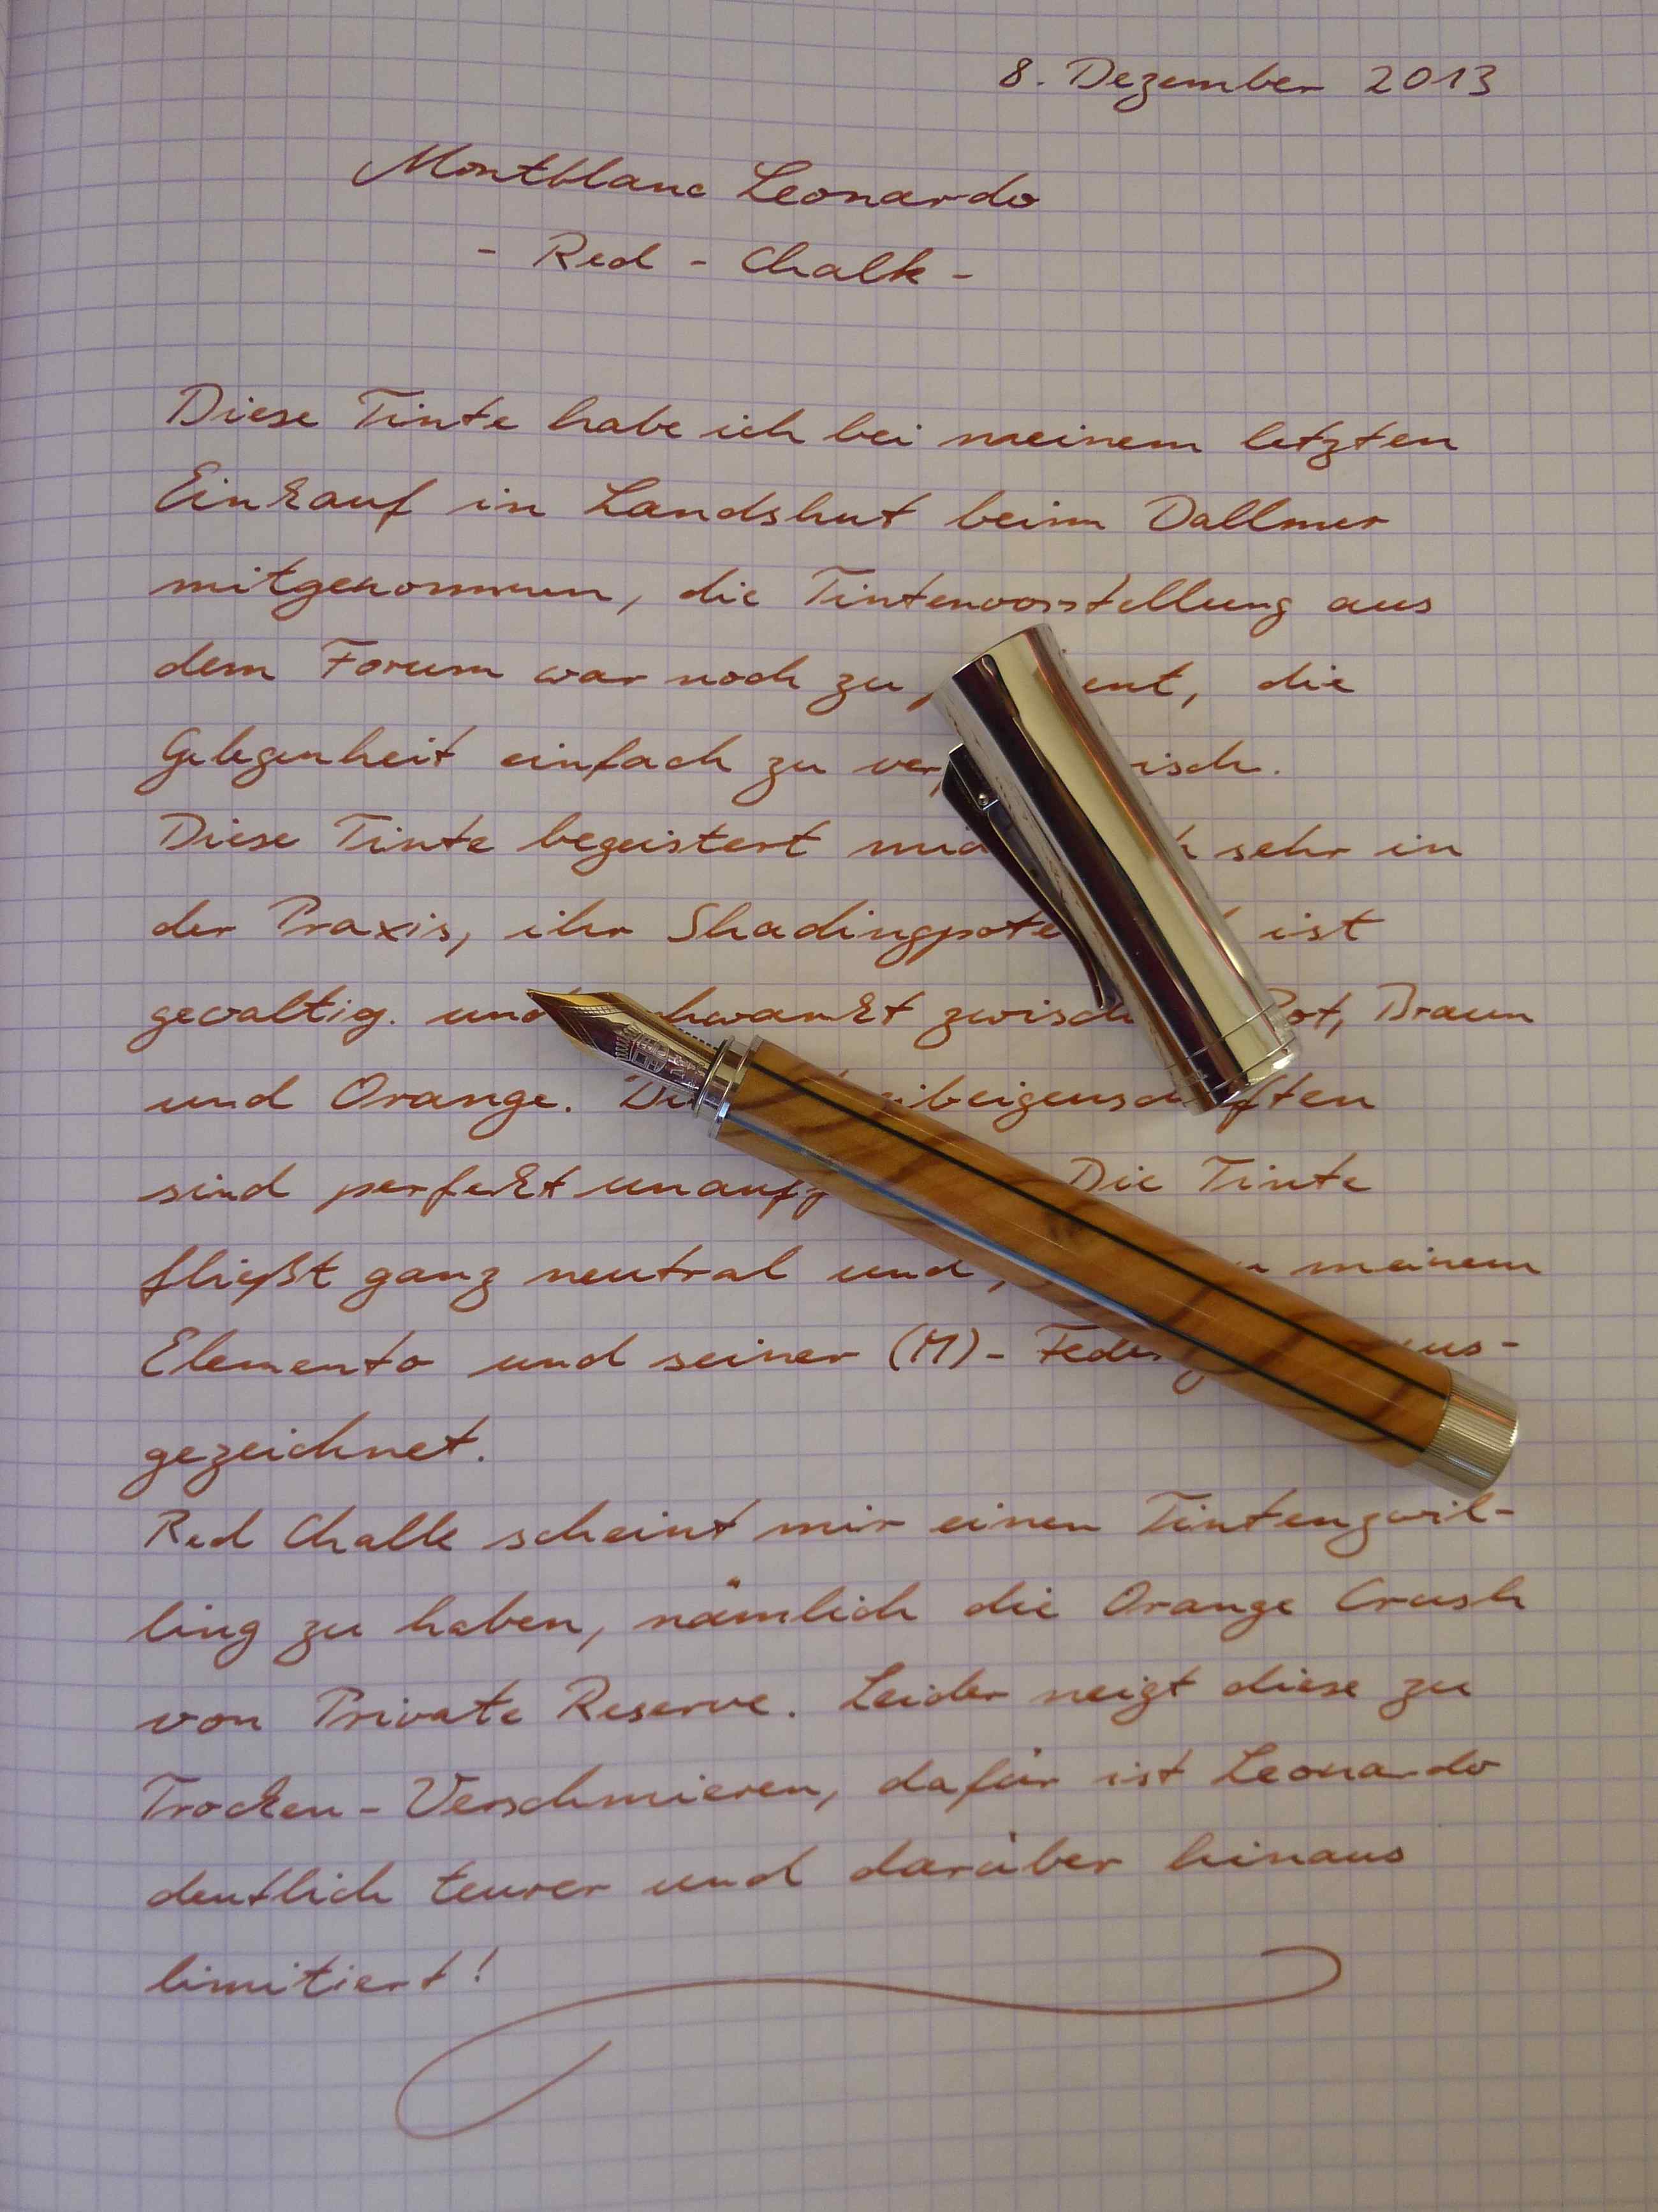 8. Dezember 2013
Montblanc Leonardo
- Red - Chalk -
Diese Tinte habe ich bei meinem letzten
Einkauf in Landshut beim Dallmer
mitgenommen, die Tintenvorstellung aus
dem Forum war noch zu ent, die
Gelegenheit einfach zu isch.
Diese Tinte begeistert sehr in
der Praxis, ihr ist
gewaltig. und Rot, Braun
und Orange.
sind perfekt Die Tinte
fließt ganz neutral und meinem
Elemento und seiner (M)- aus-
gezeichnet.
Red Chalk scheint mir einen Tintenzwil-
ling zu haben, nämlich die Orange Crush
von Private Reserve. Leider neigt diese zu
Trocken-Verschmieren, dafür ist Leonardo
deutlich teurer und darüber hinaus
limitiert!